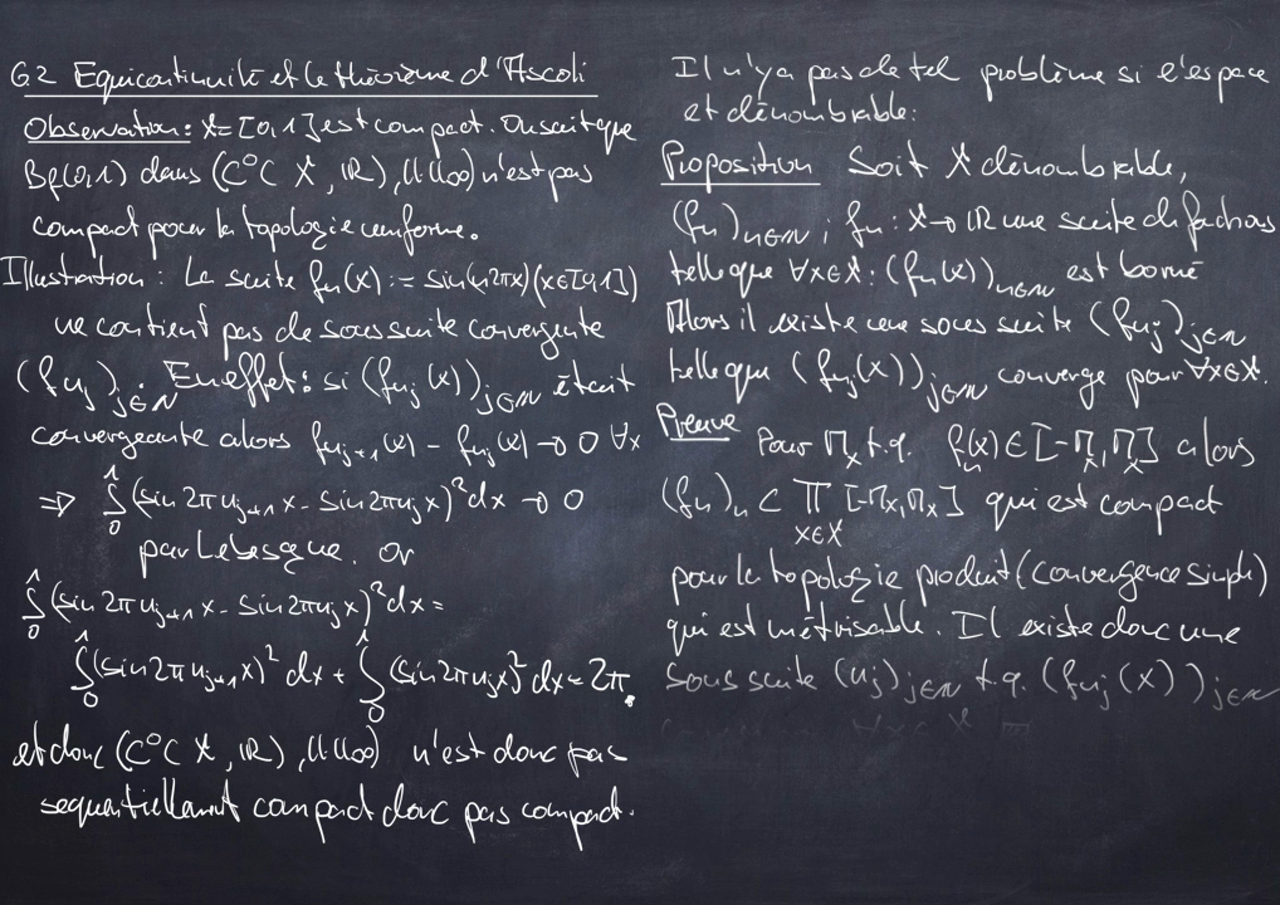 6.2 Equicontinuité et le théorème d'Ascoli
Observation: X=[0,1] est compact. On sait que
Bf(0,1) dans (C⁰(X, ℝ), ||·||∞) n'est pas
compact pour la topologie uniforme.
Illustration : La suite fn(x) := sin(n2πx)(x∈[0,1])
ne contient pas de sous suite convergente
(fnj)j∈ℕ En effet: si (fnj(x))j∈ℕ était
convergeante alors fnj+1(x) - fnj(x) → 0 ∀x
⇒ ∫₀¹ (sin 2π nj+1 x - sin 2π nj x)² dx → 0
par Lebesgue. Or
∫₀¹ (sin 2π nj+1 x - sin 2π nj x)² dx =
∫₀¹ (sin 2π nj+1 x)² dx + ∫₀¹ (sin 2π nj x)² dx = 2π.
et donc (C⁰(X, ℝ), ||·||∞) n'est donc pas
sequentiellement compact donc pas compact.
Il n'y a pas de tel problème si l'espace
et dénombrable:
Proposition Soit X dénombrable,
(fn)n∈ℕ ; fn : X→ℝ une suite de fonctions
telle que ∀x∈X : (fn(x))n∈ℕ est borné
Alors il existe une sous suite (fnj)j∈ℕ
telle que (fnj(x))j∈ℕ converge pour ∀x∈X.
Preuve Pour Mx t.q. fn(x) ∈ [-Mx, Mx] alors
(fn)n ⊂ ∏x∈X [-Mx, Mx] qui est compact
pour la topologie produit (convergence simple)
qui est métrisable. Il existe donc une
sous suite (nj)j∈ℕ t.q. (fnj(x))j∈ℕ
∀x∈X